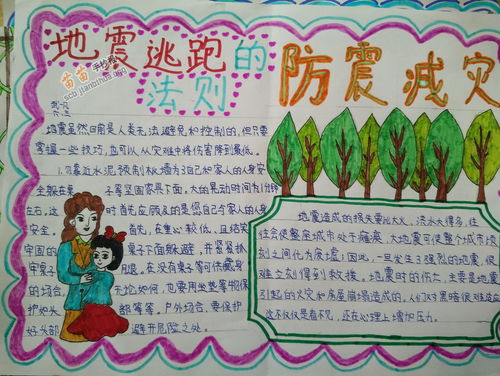 地震逃跑的
法则
防震减灾
苗苗手抄报
地震虽然目前是人类无法避免和控制的,但只要
掌握一些技巧,也可以从灾难中将伤害降到最低。
1.为了靠近水泥预制板墙为自己和家人的人身安
全躲在桌子等坚固家具下面,大的晃动时间约1分钟
左右,这时首先应顾及的是您自己和家人的人身
安全。首先,在重心较低、且结实
牢固的桌子下面躲避,并紧紧抓
牢桌子腿。在没有桌子等可供藏身
的场合,无论如何,也要用坐垫等物保
护好头部等等。户外场合,要保护
好头部避开危险之处。
地震造成的损失要比火、洪水大得多,往
往会使整座城市处于瘫痪,大地震可使整个城市顷
刻之间化为废墟;因此,一旦发生了强烈的地震,很
难立刻得到救援。地震时的伤亡,主要是地震
引起的火灾和房屋崩塌造成的,人们对黑暗很难适应
这不仅仅是看不见,还在心理上增加压力。